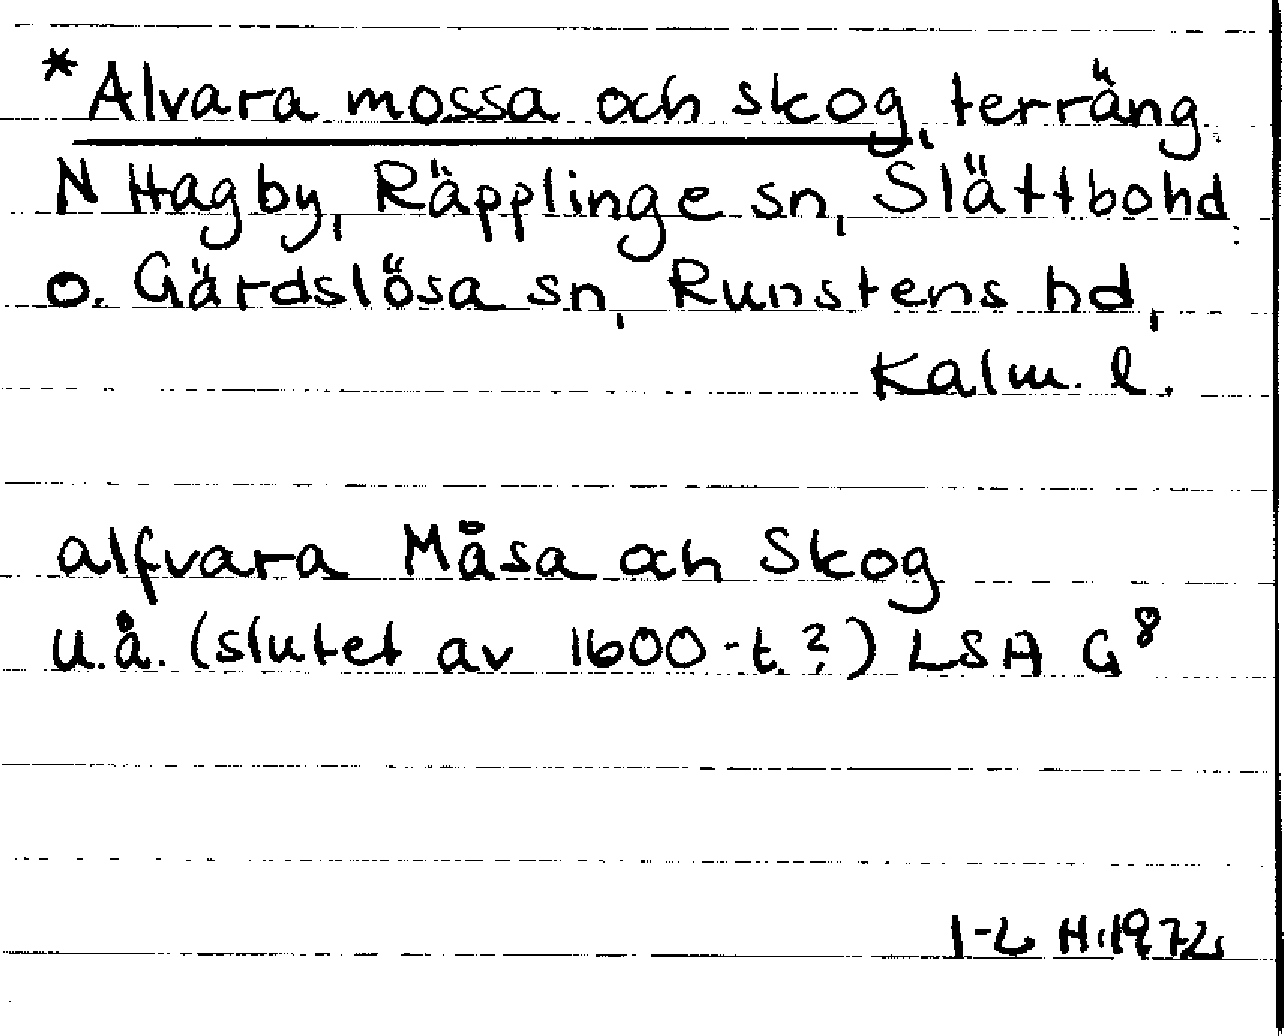 *Alvara mossa och skog, terräng
N Hagby, Räpplinge sn, Slättbo hd
o. Gärdslösa sn, Runstens hd,
Kalm. l.
alfvara Måsa och Skog
u.å. (slutet av 1600-t.?) LSA G⁸
I-L H. 1972